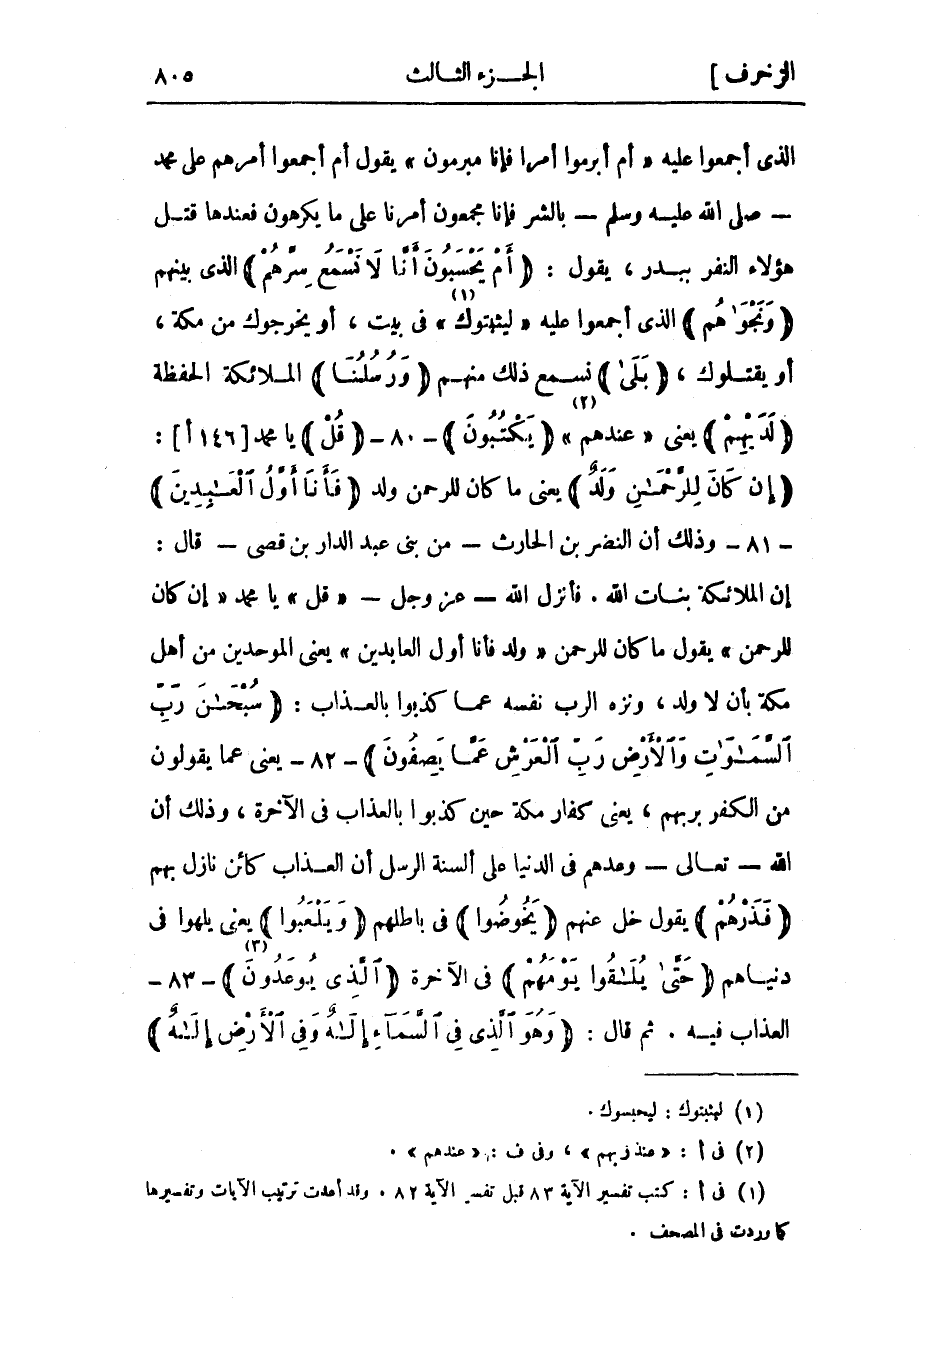 الزخرف ] الجـــزء الثالث ٨٠٥
الذى أجمعوا عليه « أم أبرموا أمرا فإنا مبرمون » يقول أم أجمعوا أمرهم على محمد
— صلى الله عليـه وسلم — بالشر فإنا مجمعون أمرنا على ما يكرهون فعندها قتـل
هؤلاء النفر ببـدر ، يقول : ﴿ أَمْ يَحْسَبُونَ أَنَّا لَا نَسْمَعُ سِرَّهُمْ ﴾ الذى بينهم
﴿ وَنَجْوَىٰهُم ﴾ الذى أجمعوا عليه « ليثبتوك » (١) فى بيت ، أو يخرجوك من مكة ،
أو يقتـلوك ، ﴿ بَلَىٰ ﴾ نسـمع ذلك منهـم ﴿ وَرُسُلُنَـا ﴾ المـلائكة الحفظة
﴿ لَدَيْهِمْ ﴾ يعنى « عندهم » (٢) ﴿ يَكْتُبُونَ ﴾ - ٨٠ - ﴿ قُلْ ﴾ يا محمد [ ١٤٦ أ ] :
﴿ إِن كَانَ لِلرَّحْمَـٰنِ وَلَدٌ ﴾ يعنى ما كان للرحمن ولد ﴿ فَأَنَا أَوَّلُ ٱلْعَـٰبِدِينَ ﴾
- ٨١ - وذلك أن النضر بن الحارث — من بنى عبد الدار بن قصى — قال :
إن الملائكة بنـات الله . فأنزل الله — عز وجل — « قل » يا محمد « إن كان
للرحمن » يقول ما كان للرحمن « ولد فأنا أول العابدين » يعنى الموحدين من أهل
مكة بأن لا ولد ، ونزه الرب نفسه عمـا كذبوا بالعـذاب : ﴿ سُبْحَـٰنَ رَبِّ
ٱلسَّمَـٰوَٰتِ وَٱلْأَرْضِ رَبِّ ٱلْعَرْشِ عَمَّـا يَصِفُونَ ﴾ - ٨٢ - يعنى عما يقولون
من الكفر بربهم ، يعنى كفار مكة حين كذبوا بالعذاب فى الآخرة ، وذلك أن
الله — تعـالى — وعدهم فى الدنيا على ألسنة الرسل أن العـذاب كائن نازل بهم
﴿ فَذَرْهُمْ ﴾ يقول خل عنهم ﴿ يَخُوضُوا ﴾ فى باطلهم ﴿ وَيَلْعَبُوا ﴾ يعنى يلهوا فى
دنيـاهم ﴿ حَتَّىٰ يُلَـٰقُوا يَوْمَهُمْ ﴾ فى الآخرة ﴿ ٱلَّذِى يُوعَدُونَ ﴾ (٣) - ٨٣ -
العذاب فيـه . ثم قال : ﴿ وَهُوَ ٱلَّذِى فِى ٱلسَّمَآءِ إِلَـٰهٌ وَفِى ٱلْأَرْضِ إِلَـٰهٌ ﴾
(١) ليثبتوك : ليحبسوك .
(٢) فى أ : « عند ربهم » ، وفى ف : « عندهم » .
(١) فى أ : كتب تفسير الآية ٨٣ قبل تفسير الآية ٨٢ . وقد أعدت ترتيب الآيات وتفسيرها
كما وردت فى المصحف .